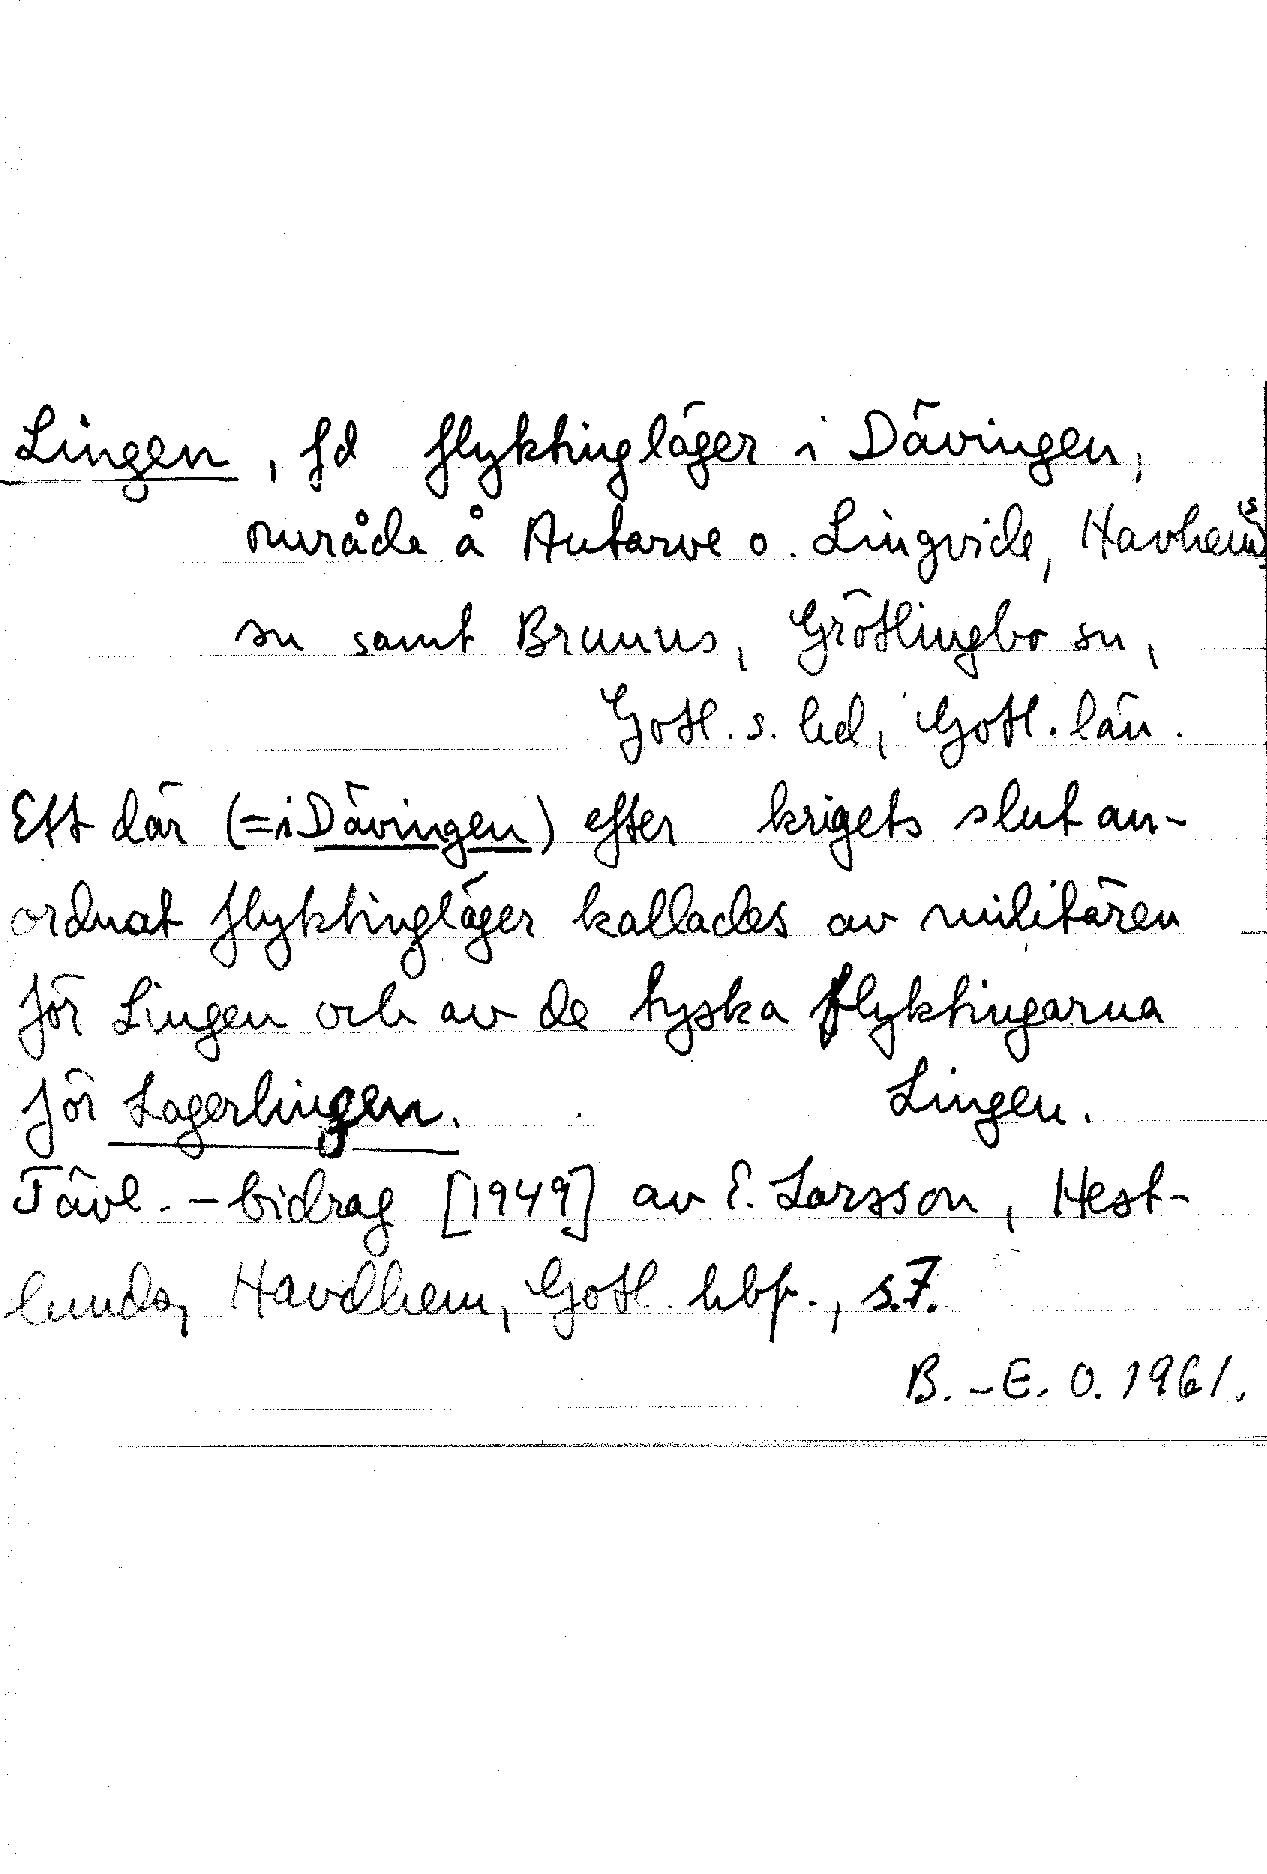 Lingen, fd flyktingläger i Dävingen,
område å Autarve o. Lingvide, Havhems
sn samt Brunns, Grötlingbo sn,
Gotl. s. hd, Gotl. län.
Ett där (= i Dävingen) efter krigets slut an-
ordnat flyktingläger kallades av militären
för Lingen och av de tyska flyktingarna
för Lagerlingen. Lingen.
Tävl.-bidrag [1949] av E. Larsson, Hest-
lunda, Havdhem, Gotl. hbf., s.7.
B.-E. O. 1961.